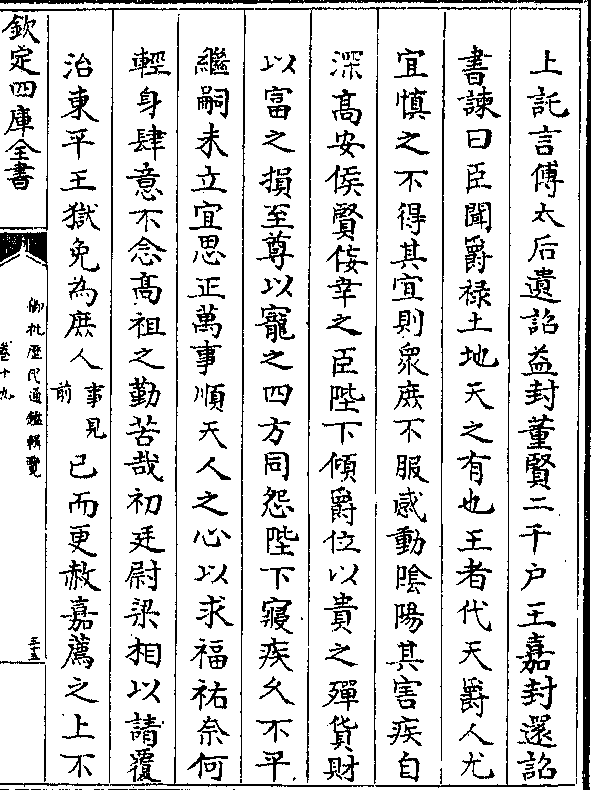 上託言傅太后遺詔益封董賢二千户王嘉封還詔
書諫曰臣聞爵禄土地天之有也王者代天爵人尤
宜慎之不得其宜則衆庶不服感動隂陽其害疾自
深髙安侯賢佞幸之臣陛下傾爵位以貴之殫貨財
以富之損至尊以寵之四方同怨陛下寢疾久不平
繼嗣未立宜思正萬事順天人之心以求福祐奈何
輕身肆意不念髙祖之勤苦哉初廷尉梁相以請覆
治東平王獄免為庶人事見前已而更赦嘉薦之上不
欽定四庫全書
御批歷代通鑑輯覽
卷十九
三十五